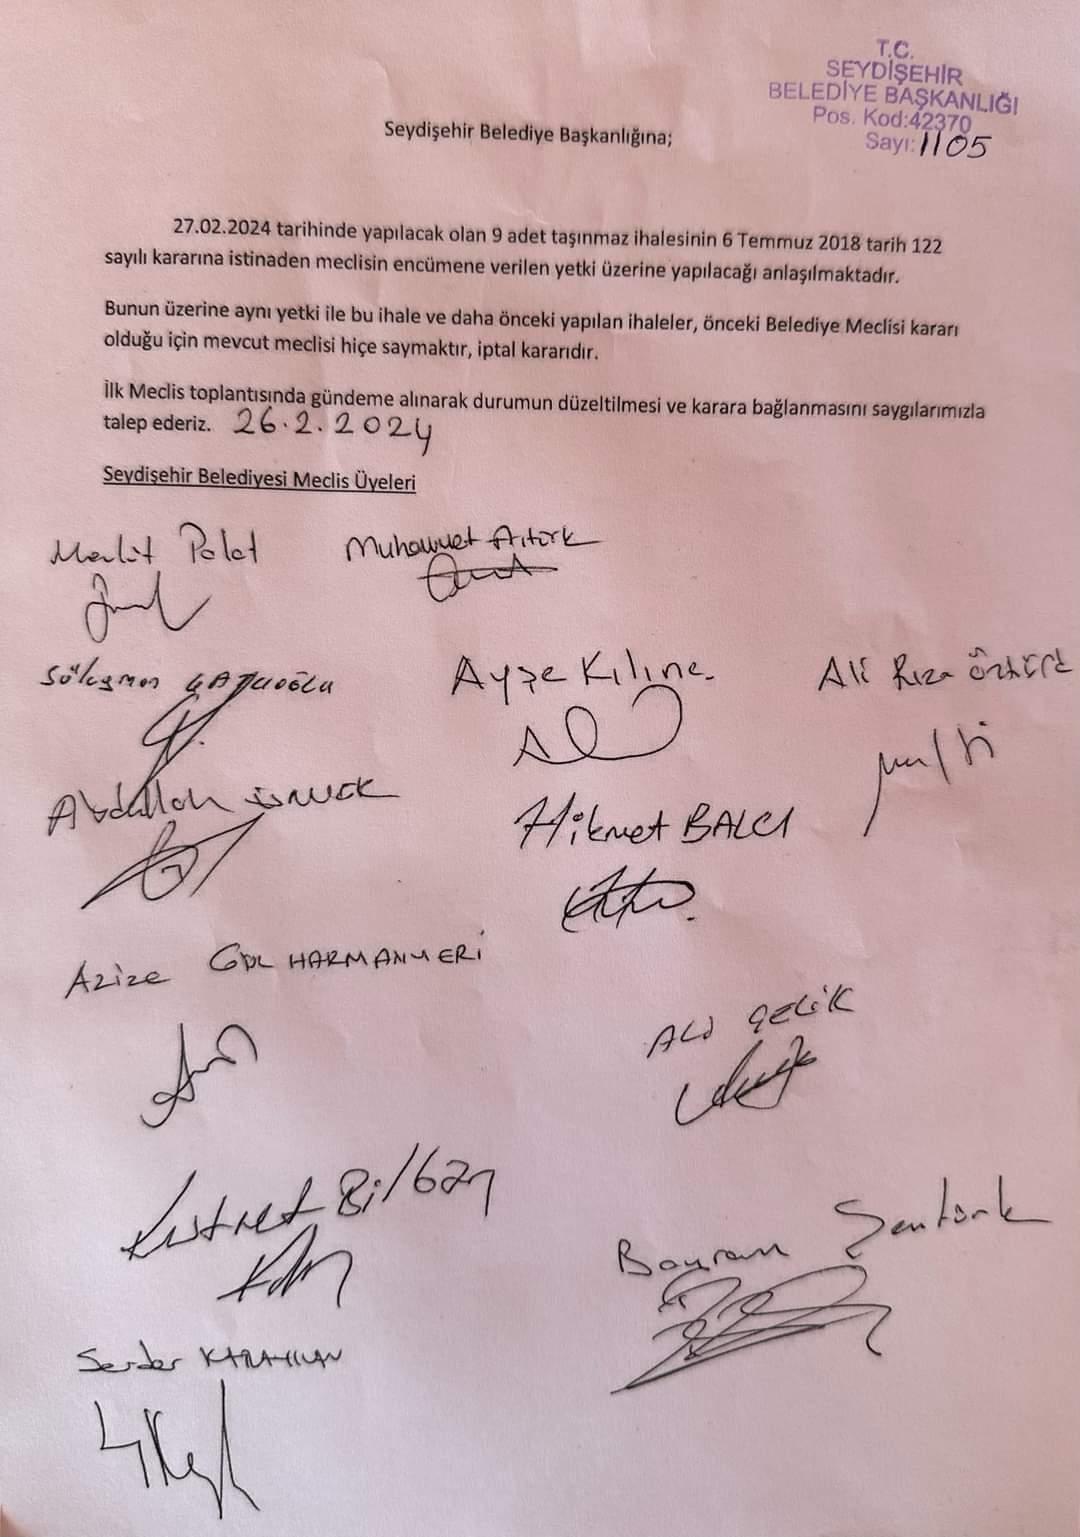 T.C.
SEYDİŞEHİR
BELEDİYE BAŞKANLIĞI
Pos. Kod:42370
Sayı: 1105
Seydişehir Belediye Başkanlığına;
27.02.2024 tarihinde yapılacak olan 9 adet taşınmaz ihalesinin 6 Temmuz 2018 tarih 122
sayılı kararına istinaden meclisin encümene verilen yetki üzerine yapılacağı anlaşılmaktadır.
Bunun üzerine aynı yetki ile bu ihale ve daha önceki yapılan ihaleler, önceki Belediye Meclisi kararı
olduğu için mevcut meclisi hiçe saymaktır, iptal kararıdır.
İlk Meclis toplantısında gündeme alınarak durumun düzeltilmesi ve karara bağlanmasını saygılarımızla
talep ederiz. 26.2.2024
Seydişehir Belediyesi Meclis Üyeleri
Mevlüt Polat Muhammet Arıtürk
Süleyman Ayşe Kılınc Ali Rıza Öztürk
Abdullah Hikmet BALCI
Azize GÜL HARMANYERİ
ALİ ÇELİK
Kısmet Bilgan
Bayram Şentürk
Serdar KARAYILAN